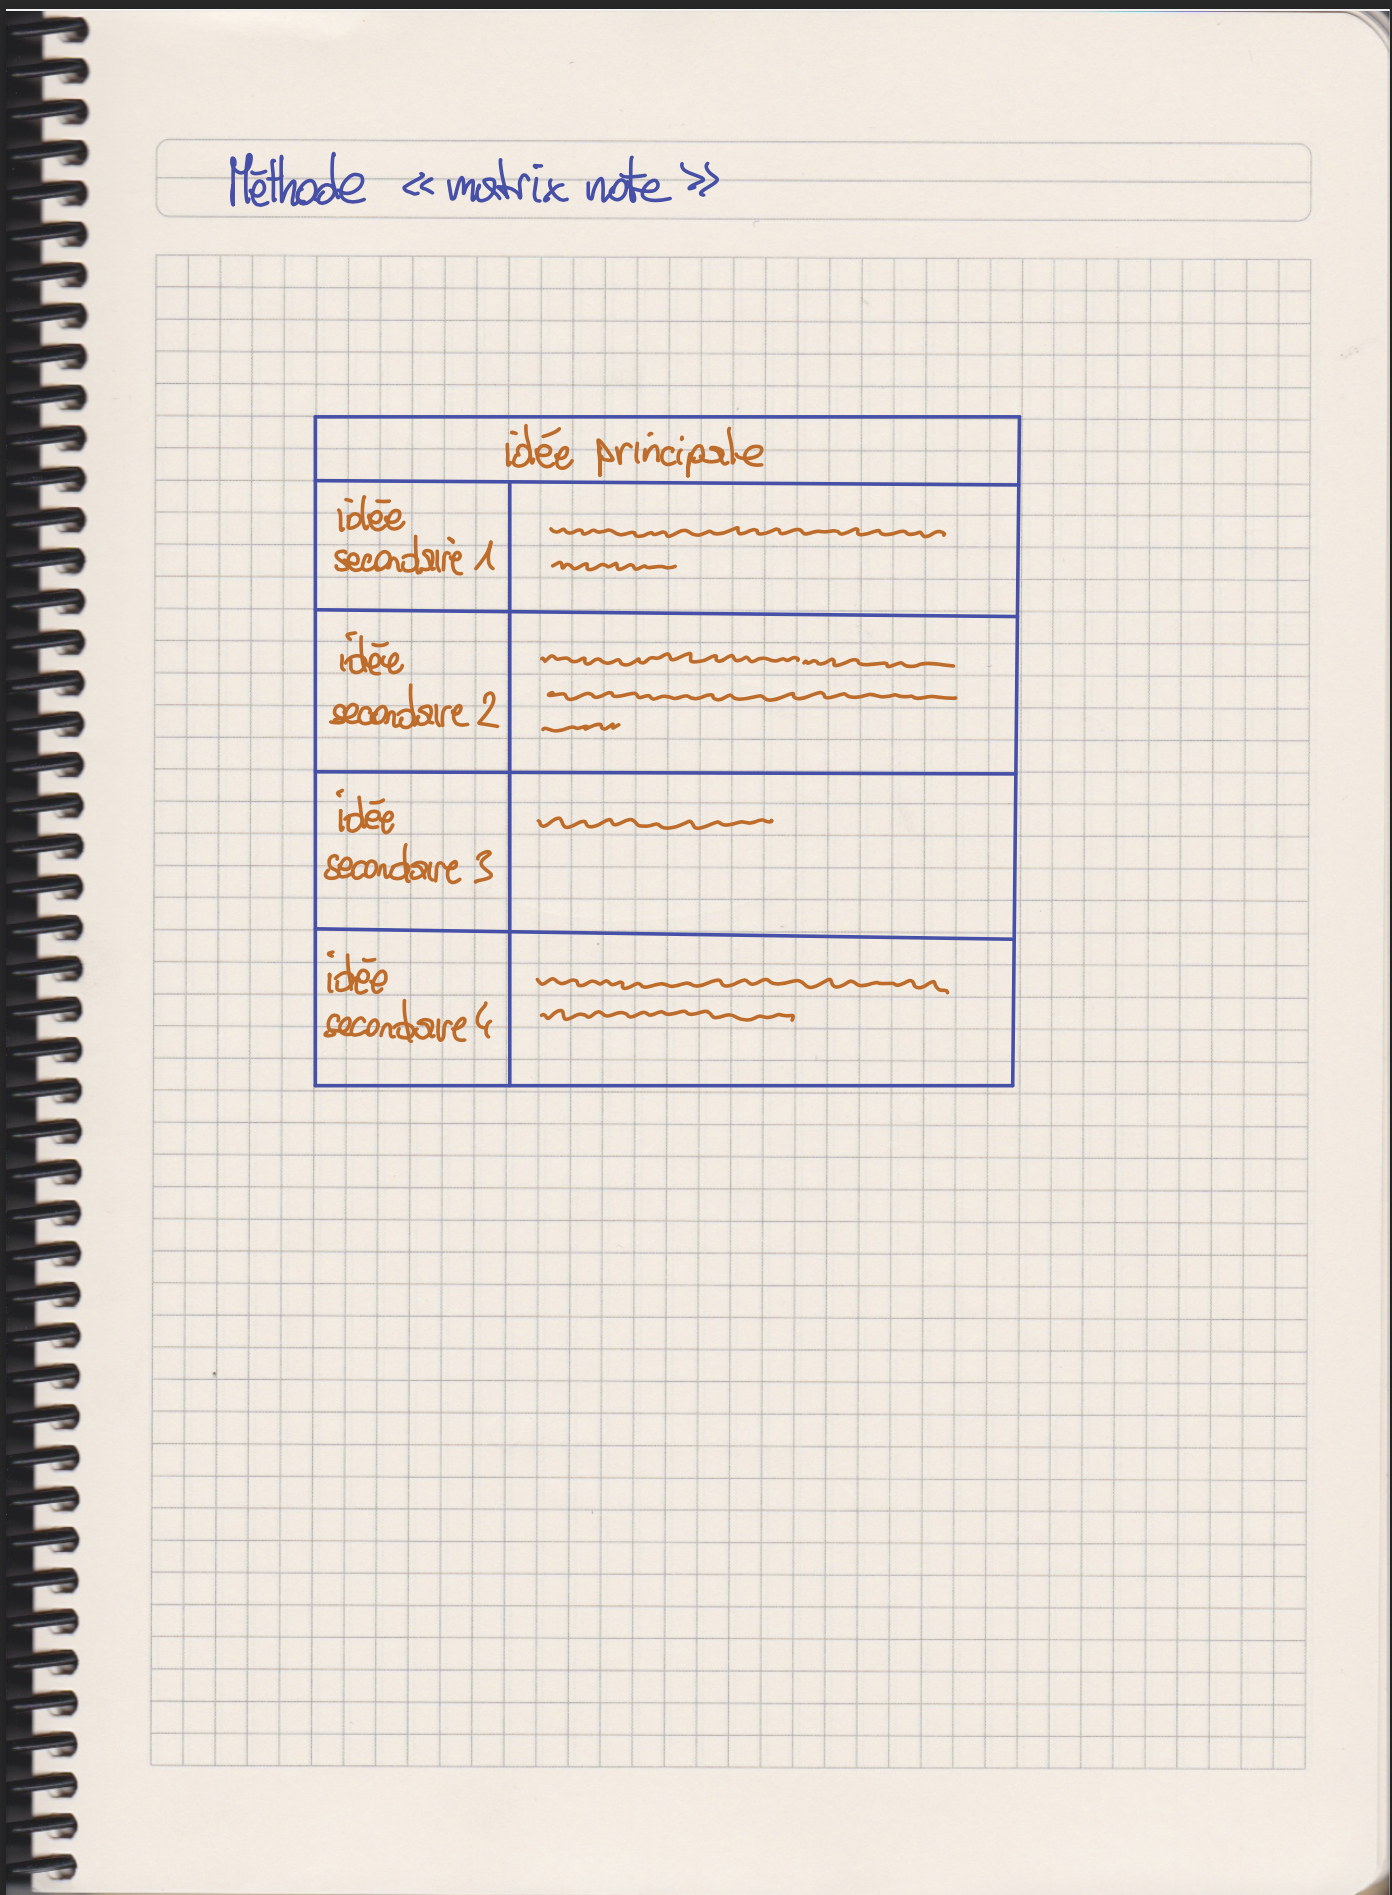 Méthode « matrix note »
idée principale
idée
secondaire 1
idée
secondaire 2
idée
secondaire 3
idée
secondaire 4